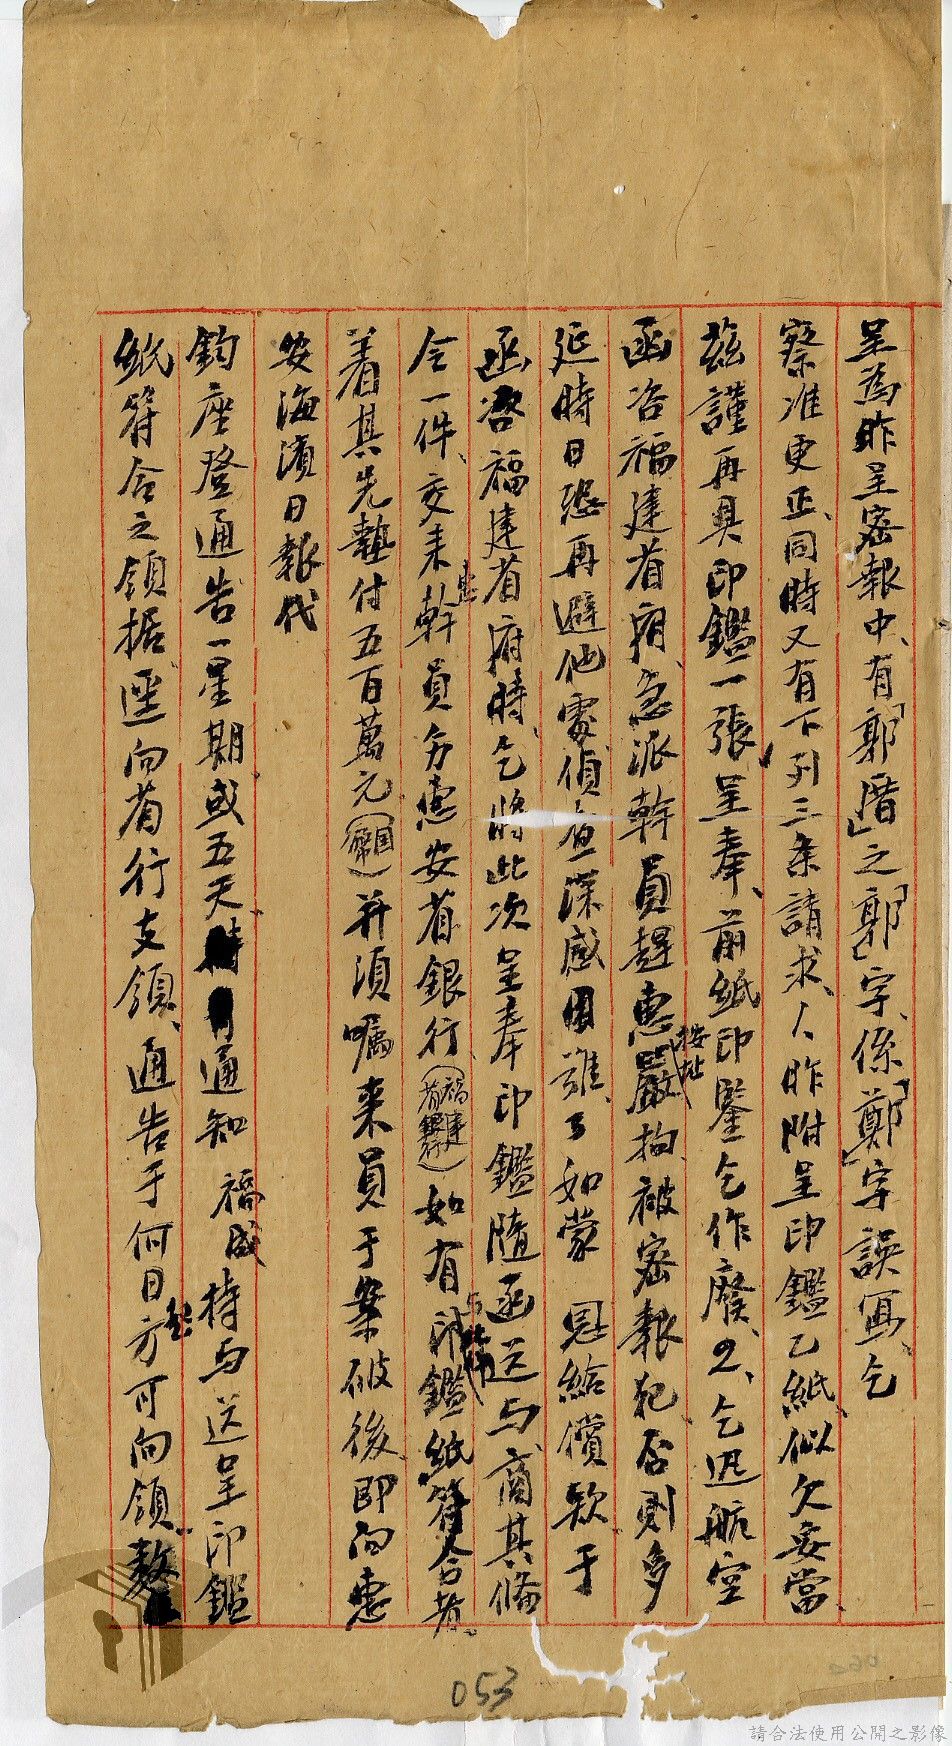 呈為昨呈密報中、有「郭厝」之「郭」字、係「鄭」字誤寫、乞
察准更正、同時又有下列三条請求、人昨附呈印鑑乙紙、似欠妥當、
茲謹再具印鑑一張、呈奉、前紙印鑒乞作廢、2、乞迅航空
函咨福建省府、急派幹員趕惠按址嚴拘被密報犯、否則多
延時日恐再避他處、偵查深感困難、3如蒙 恩給償款、于
函咨福建省府時、乞將此次呈奉印鑑隨函送与、商其條
令一件、交來幹員分惠安省銀行、(福建省銀行)如有印鑑紙符合者、
着其先墊付五百萬元(国幣)并須囑来員于案破後、即向惠
安海濱日報代
鈞座登通告一星期或五天、通知 福盛持与送呈印鑑
紙符合之領据逕向省行支領、通告于何日起方可向領、
053
請合法使用公開之影像